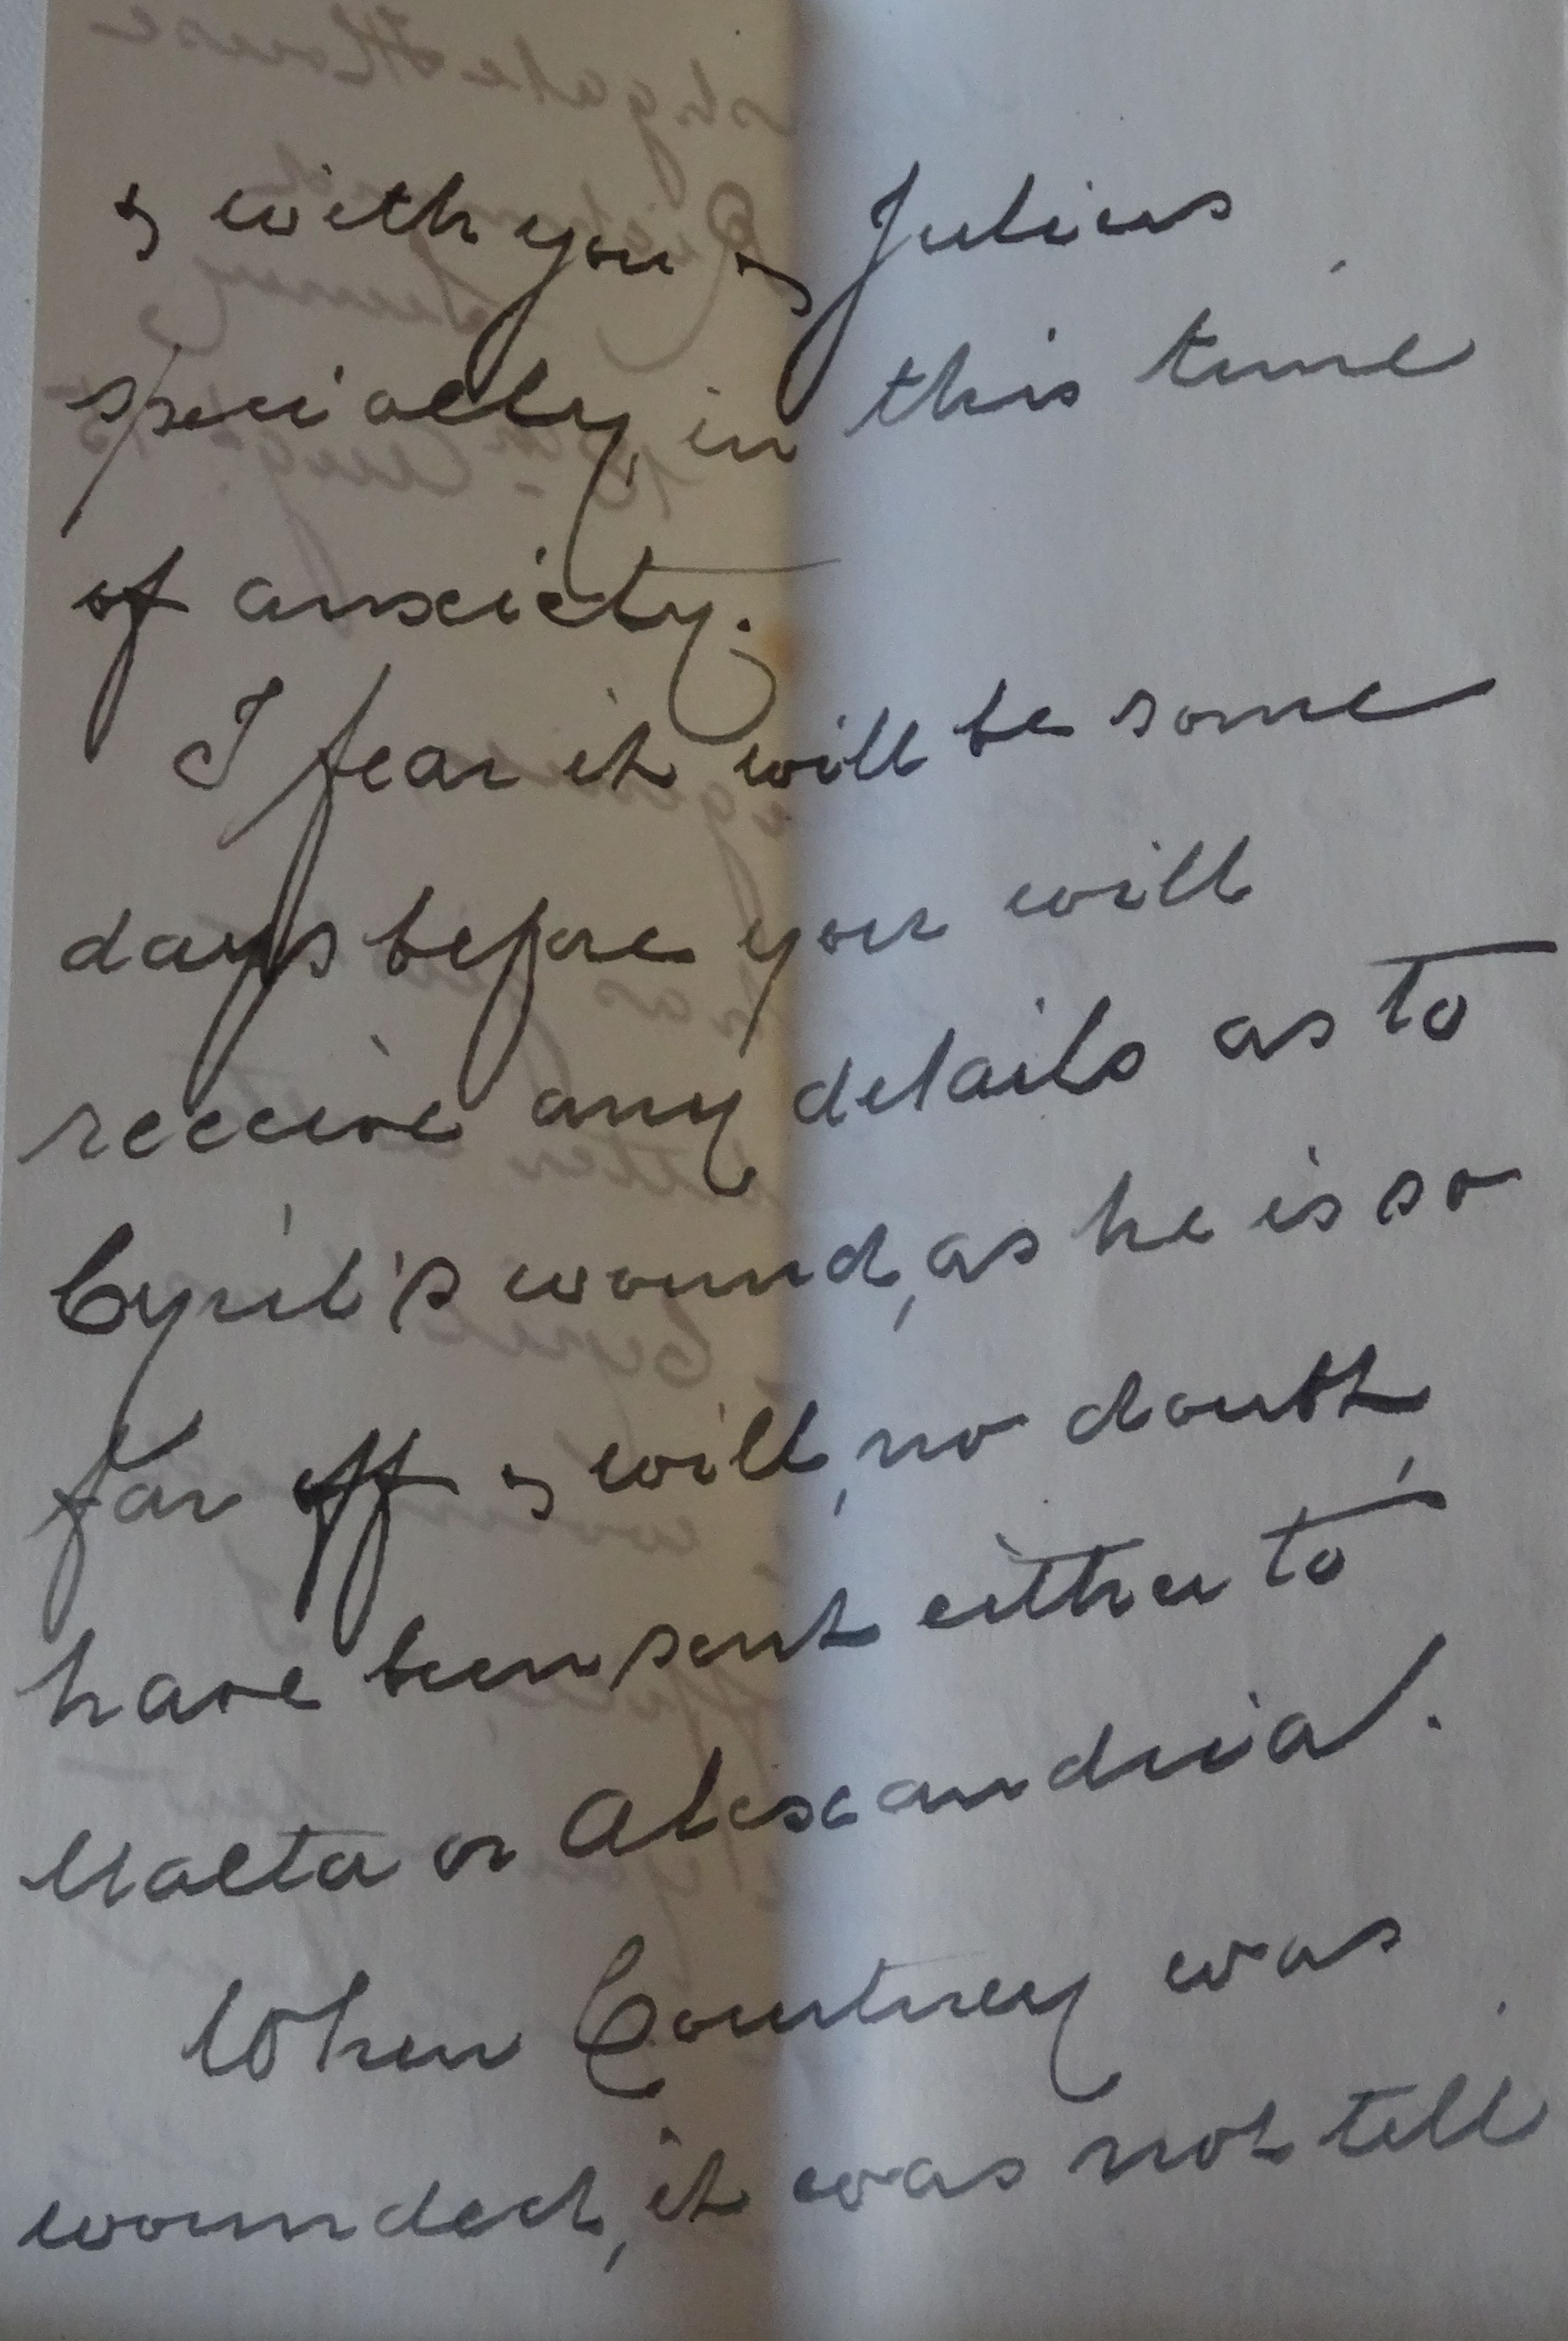 & with you & Julius
specially, in this time
of anxiety.
I fear it will be some
days before you will
receive any details as to
Cyril's wound, as he is so
far off & will, no doubt,
have been sent either to
Malta or Alexandria.
When Courtney was
wounded, it was not till